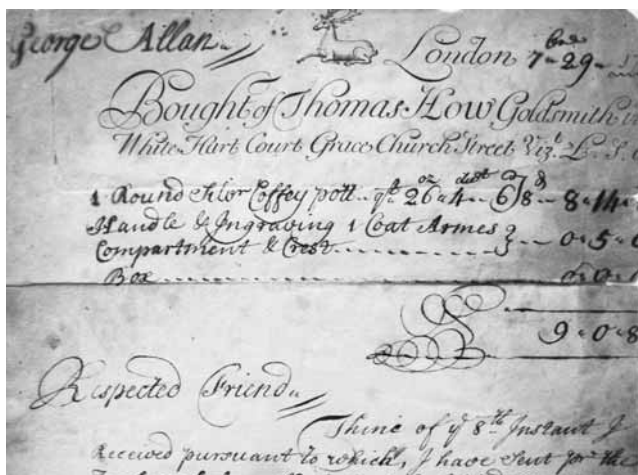 George Allan
London 7 ber 29
Bought of Thomas How Goldsmith
White Hart Court Grace Church Street Viz.t L. S.
1 Round Silor Coffey pott .. q.t 26 oz 4 dwt @ 6/8 d .. 8 . 14
Handle & Ingraving 1 Coat Armes
Compartment & Crest .......... 0 . 5 .
Box .......... 0 . 0 .
9 . 0 . 8
Respected Friend
Thine of y.e 8th Instant I
Received pursuant to which, I have Sent